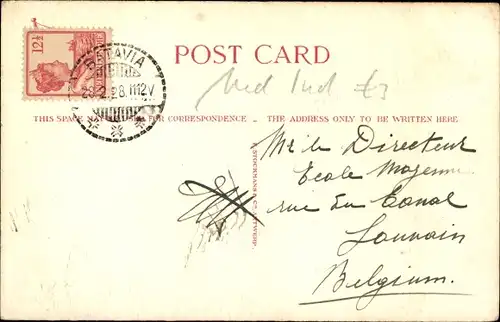 12½
BATAVIA
28.2.28.1112V
POST CARD
Ned Ind £3
THIS SPACE MAY BE USED FOR CORRESPONDENCE
THE ADDRESS ONLY TO BE WRITTEN HERE
Mr le Directeur
Ecole Moyenne
rue du Canal
Louvain
Belgium.
STOCKMANS & Co, ANTWERP.